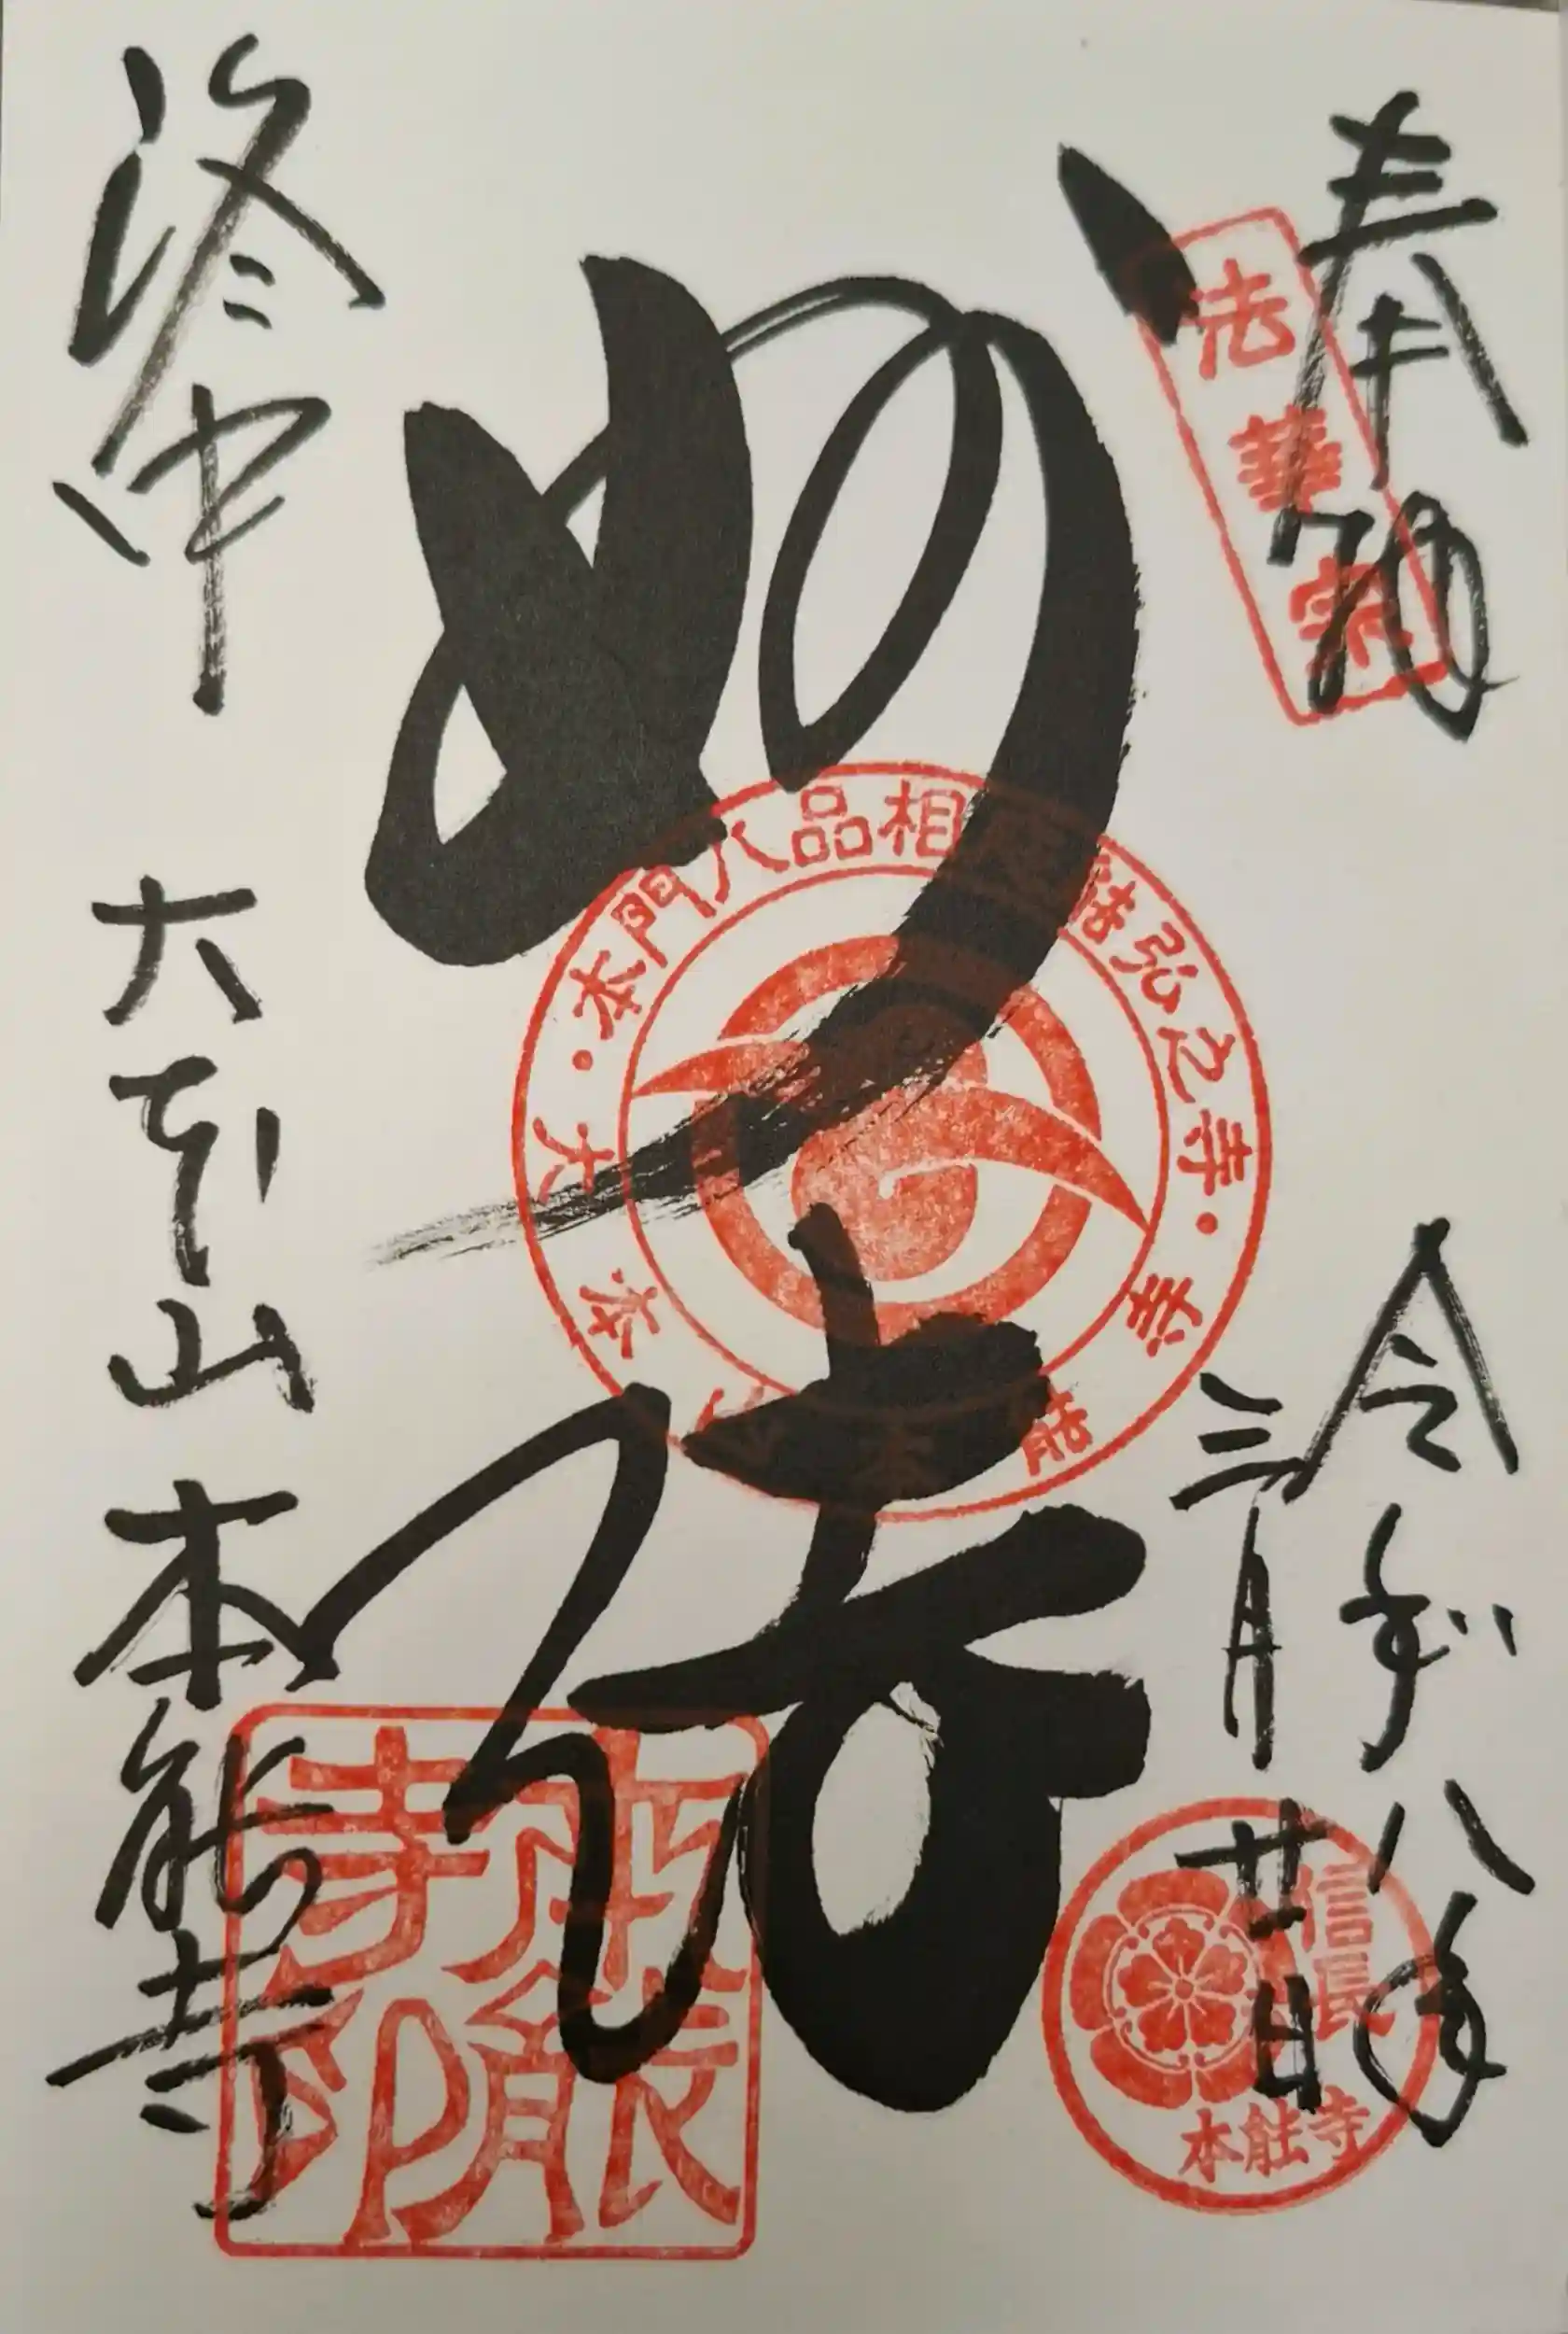 奉
法華宗
令和八年
三月廿日
妙法
本門八品相 弘之寺
大本山本能寺
信長
本能寺
洛中 大本山 本能寺
本能寺印